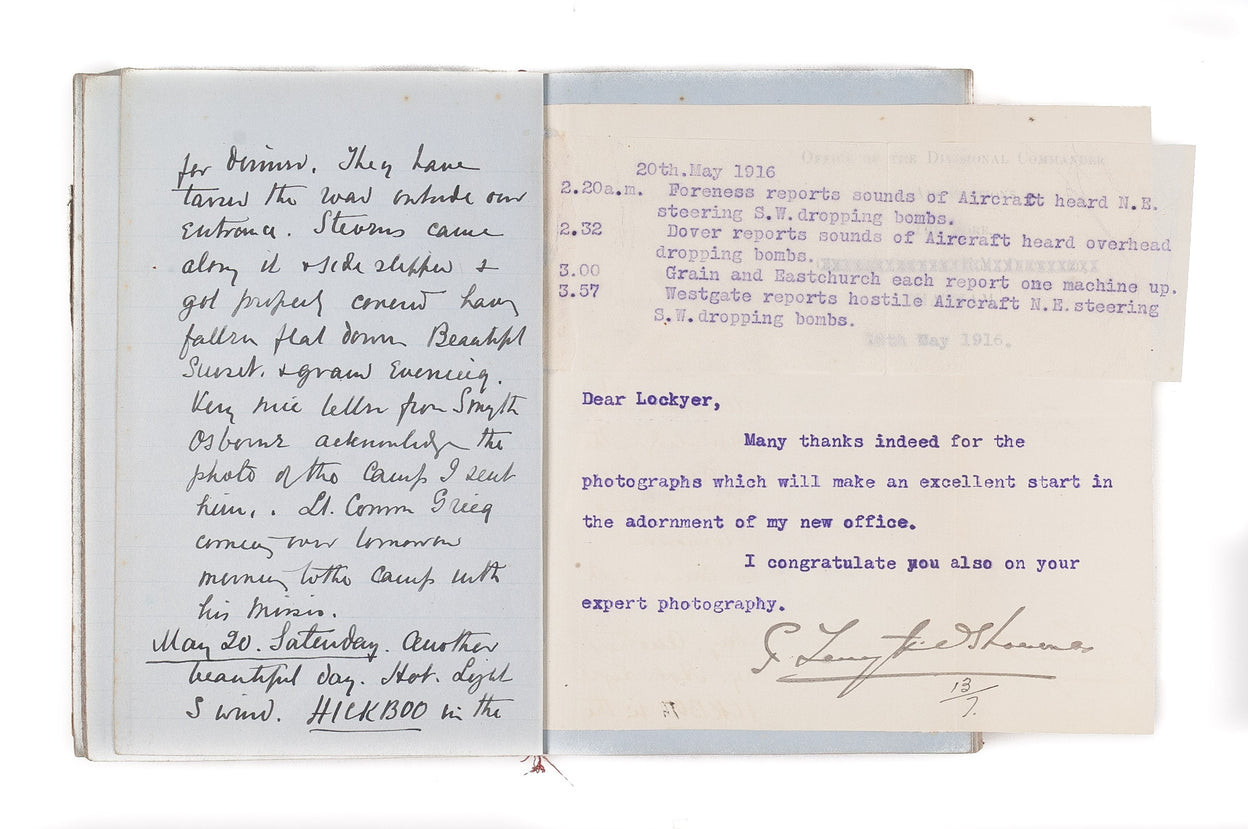 for dinner. They have
tarred the road outside our
entrance. Stevens came
along it & side slipped &
got properly covered having
fallen flat down Beautiful
Sunset. & grand Evening.
Very nice letter from Smyth
Osborne acknowledg the
photo of the Camp I sent
him. Lt. Comm Grieg
coming over tomorrow
morning to the Camp with
his Missis.
May 20. Saturday. Another
beautiful day. Hot. Light
S wind. HICKBOO in the
OFFICE OF THE DIVISIONAL COMMANDER
20th.May 1916
2.20a.m. Foreness reports sounds of Aircraft heard N.E.
steering S.W.dropping bombs.
2.32 Dover reports sounds of Aircraft heard overhead
dropping bombs.
3.00 Grain and Eastchurch each report one machine up.
3.57 Westgate reports hostile Aircraft N.E.steering
S.W.dropping bombs.
May 1916.
Dear Lockyer,
Many thanks indeed for the
photographs which will make an excellent start in
the adornment of my new office.
I congratulate you also on your
expert photography.
13/7.